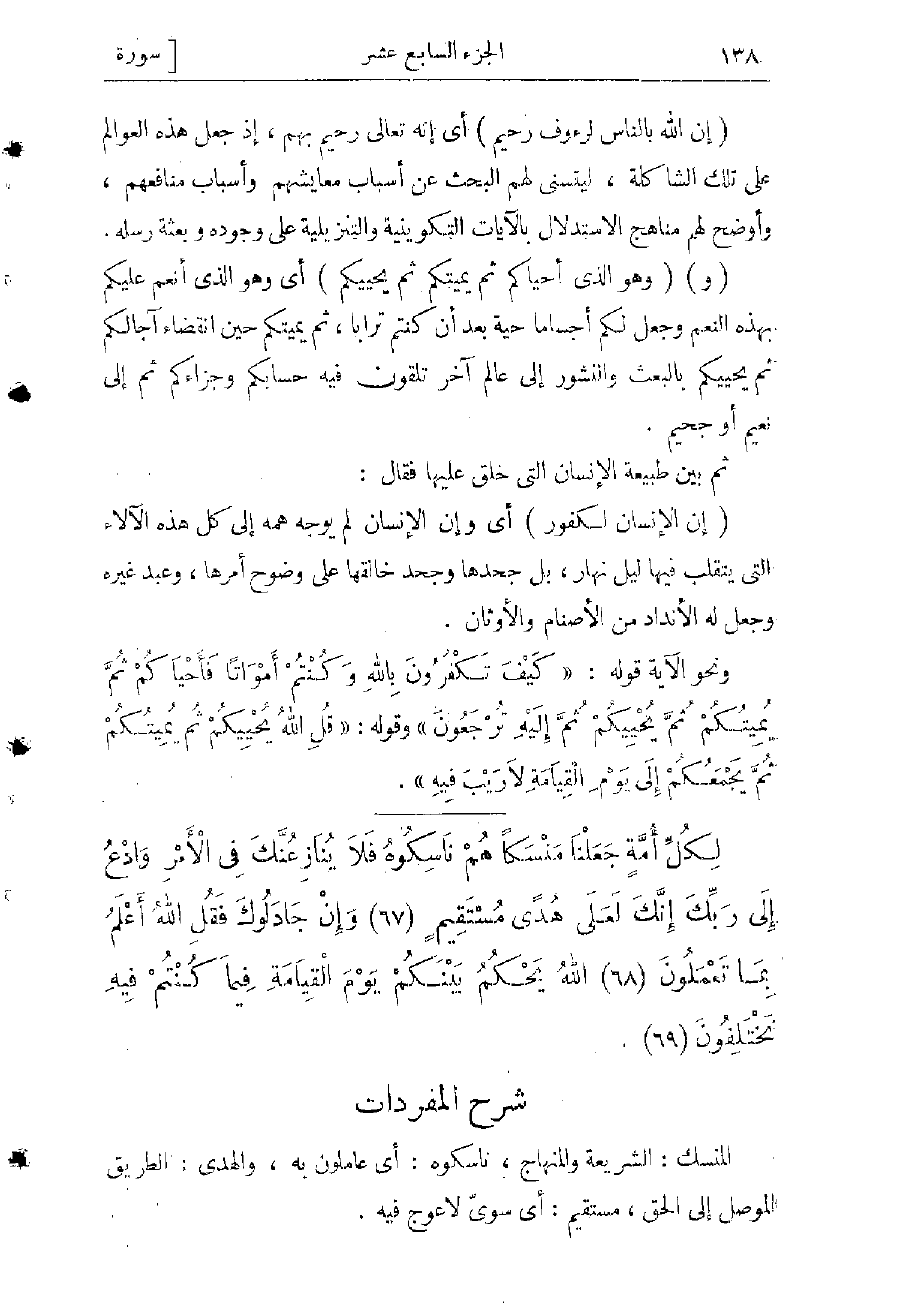 ١٣٨ الجزء السابع عشر [ سورة
( إن الله بالناس لرءوف رحيم ) أى إنه تعالى رحيم بهم ، إذ جعل هذه العوالم
على تلك الشاكلة ، ليتسنى لهم البحث عن أسباب معايشهم وأسباب منافعهم ،
وأوضح لهم مناهج الاستدلال بالآيات التكوينية والتنزيلية على وجوده وبعثة رسله .
( و ) ( وهو الذى أحياكم ثم يميتكم ثم يحييكم ) أى وهو الذى أنعم عليكم
بهذه النعم وجعل لكم أجساما حية بعد أن كنتم ترابا ، ثم يميتكم حين انقضاء آجالكم
ثم يحييكم بالبعث والنشور إلى عالم آخر تلقون فيه حسابكم وجزاءكم ثم إلى
نعيم أو جحيم .
ثم بين طبيعة الإنسان التى خلق عليها فقال :
( إن الإنسان لكفور ) أى وإن الإنسان لم يوجه همه إلى كل هذه الآلاء
التى يتقلب فيها ليل نهار ، بل جحدها وجحد خالقها على وضوح أمرها ، وعبد غيره
وجعل له الأنداد من الأصنام والأوثان .
ونحو الآية قوله : « كَيْفَ تَكْفُرُونَ بِاللهِ وَكُنْتُمْ أَمْوَاتًا فَأَحْيَا كُمْ ثُمَّ
يُمِيتُكُمْ ثُمَّ يُحْيِيكُمْ ثُمَّ إِلَيْهِ تُرْجَعُونَ » وقوله : « قُلِ اللهُ يُحْيِيكُمْ ثُمَّ يُمِيتُكُمْ
ثُمَّ يَجْمَعُكُمْ إِلَى يَوْمِ الْقِيَامَةِ لاَرَيْبَ فِيهِ » .
لِكُلِّ أُمَّةٍ جَعَلْنَا مَنْسَكاً هُمْ نَاسِكُوهُ فَلاَ يُنَازِعُنَّكَ فِى الْأَمْرِ وَادْعُ
إِلَى رَبِّكَ إِنَّكَ لَعَلَى هُدًى مُسْتَقِيمٍ (٦٧) وَإِنْ جَادَلُوكَ فَقُلِ اللهُ أَعْلَمُ
بِمَا تَعْمَلُونَ (٦٨) اللهُ يَحْكُمُ بَيْنَكُمْ يَوْمَ الْقِيَامَةِ فِيمَا كُنْتُمْ فِيهِ
تَخْتَلِفُونَ (٦٩) .
شرح المفردات
المنسك : الشريعة والمنهاج ، ناسكوه : أى عاملون به ، والهدى : الطريق
الموصل إلى الحق ، مستقيم : أى سوىّ لاعوج فيه .